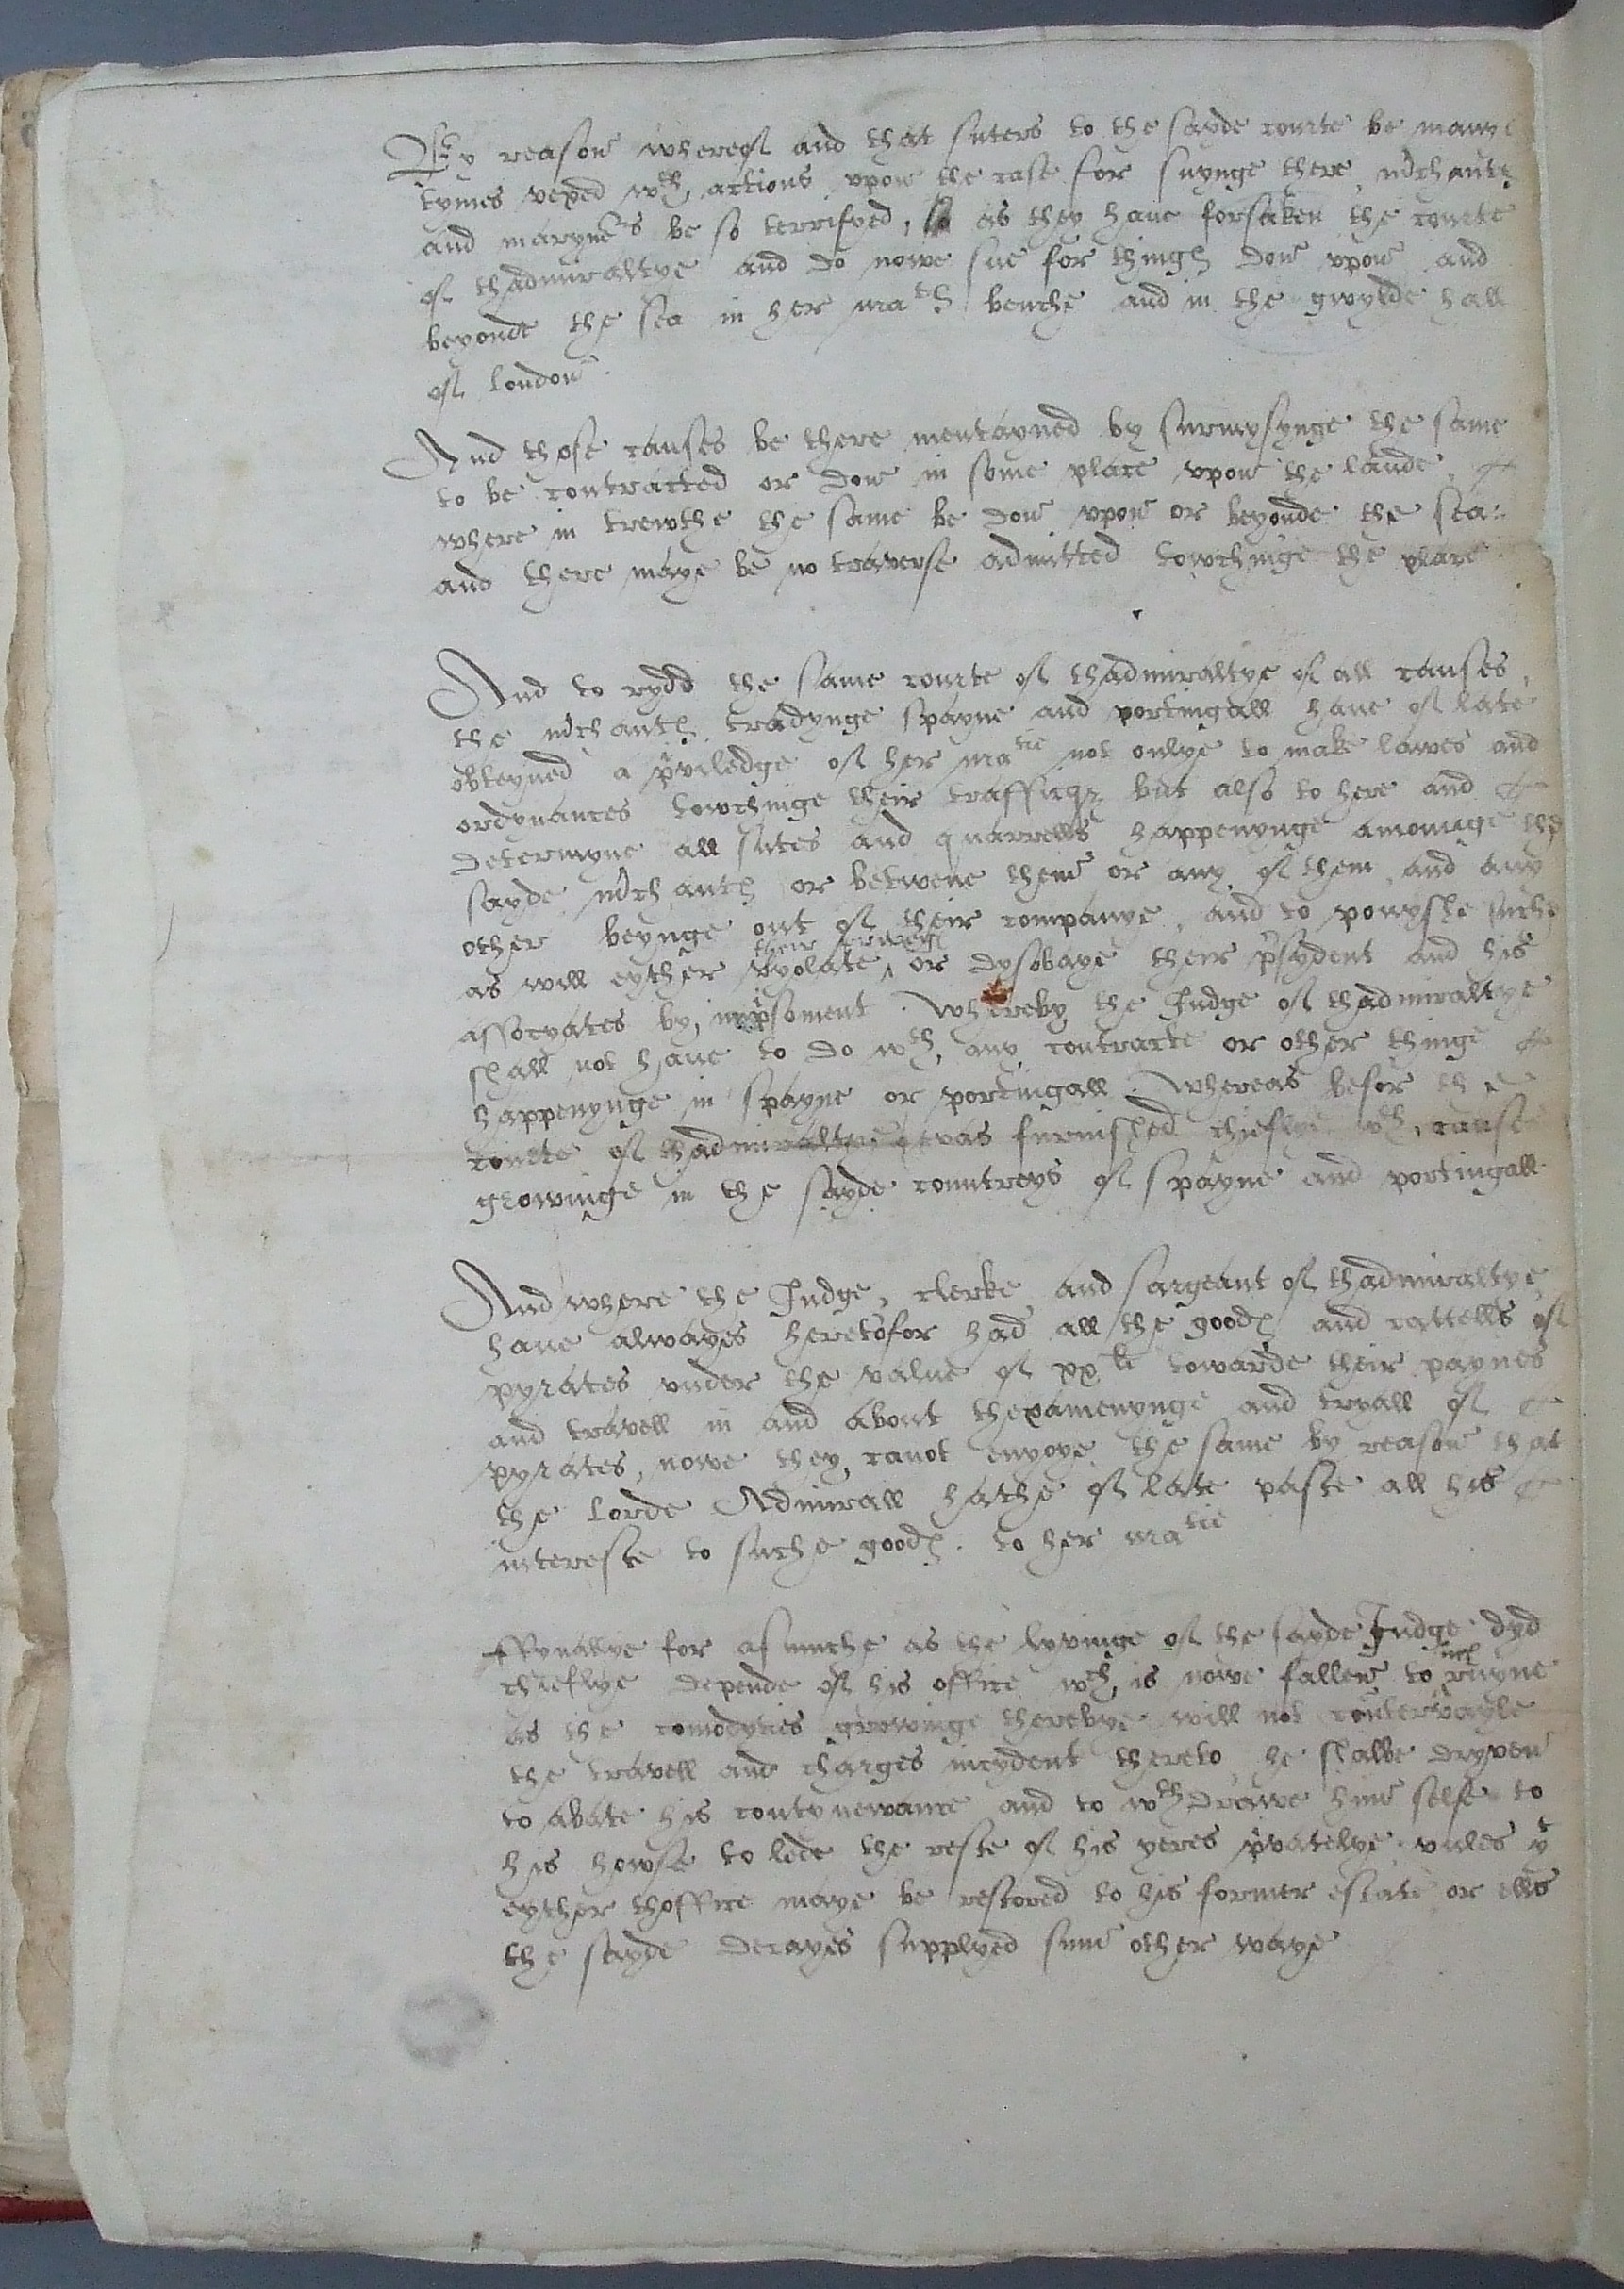 By reason whereof and that suters to the sayde courte be manye
tymes vexed wth actions vpon the case for suynge there, mrchants
and maryners be so terrifyed, as they haue forsaken the courte
of thadmiraltye and do nowe sue for things don vpon and
beyonde the sea in her mats benche and in the gwylde hall
of london.
And those causes be there mentayned by surmysynge the same
to be contracted or don in some place vpon the lande
where in trewthe the same be don vpon or beyonde the sea:
and there maye be no traverse admitted towchinge the place
And to rydd the same courte of thadmiraltye of all causes,
the mrchants tradynge spayne and portingall haue of late
obteyned a pryviledge of her matie not onlye to make lawes and
ordynances towchinge their traffique but also to here and
determyne all sutes and quarrells happenynge amonge the
sayde mrchants or betwene them or any of them and any
other beynge out of their companye, and to ponyshe suche
their
as will eyther vyolate, or dysobaye their prsydent and his
assocyates by, imprsoment. Whereby the Judge of thadmiraltye
shall not haue to do wth any contracte or other thinge
happenynge in spayne or portingall. Whereas befor the
courte of thadmiraltye was furnished chieflye wth, cause
growinge in the sayde countreys of spayne and portingall.
And where the Judge, clerke and sargeant of thadmiraltye,
haue alwayes heretofor had all the goods and cattells of
pyrates vnder the value of xxli towarde their paynes
and travell in and about thexamenynge and tryall of
pyrates, nowe they canot enyoye the same by reason that
the lorde Admirall hathe of late paste all his
intereste to suche goods. to her matie
ffynallye for asmuche as the lyvinge of the sayde Judge dyd
such
chieflye depende of his office wch is nowe fallen to ruyne
as the comodyties growinge therebye will not contervayle
the travell and charges incydent thereto he shalbe dryven
to abate his contynewance and to wthdrawe him selfe to
his howse to lede the reste of his yeres prvatelye vnles yt
eyther thoffice maye be restored to his former estate or ells
the sayde decayes supplyed sum other waye